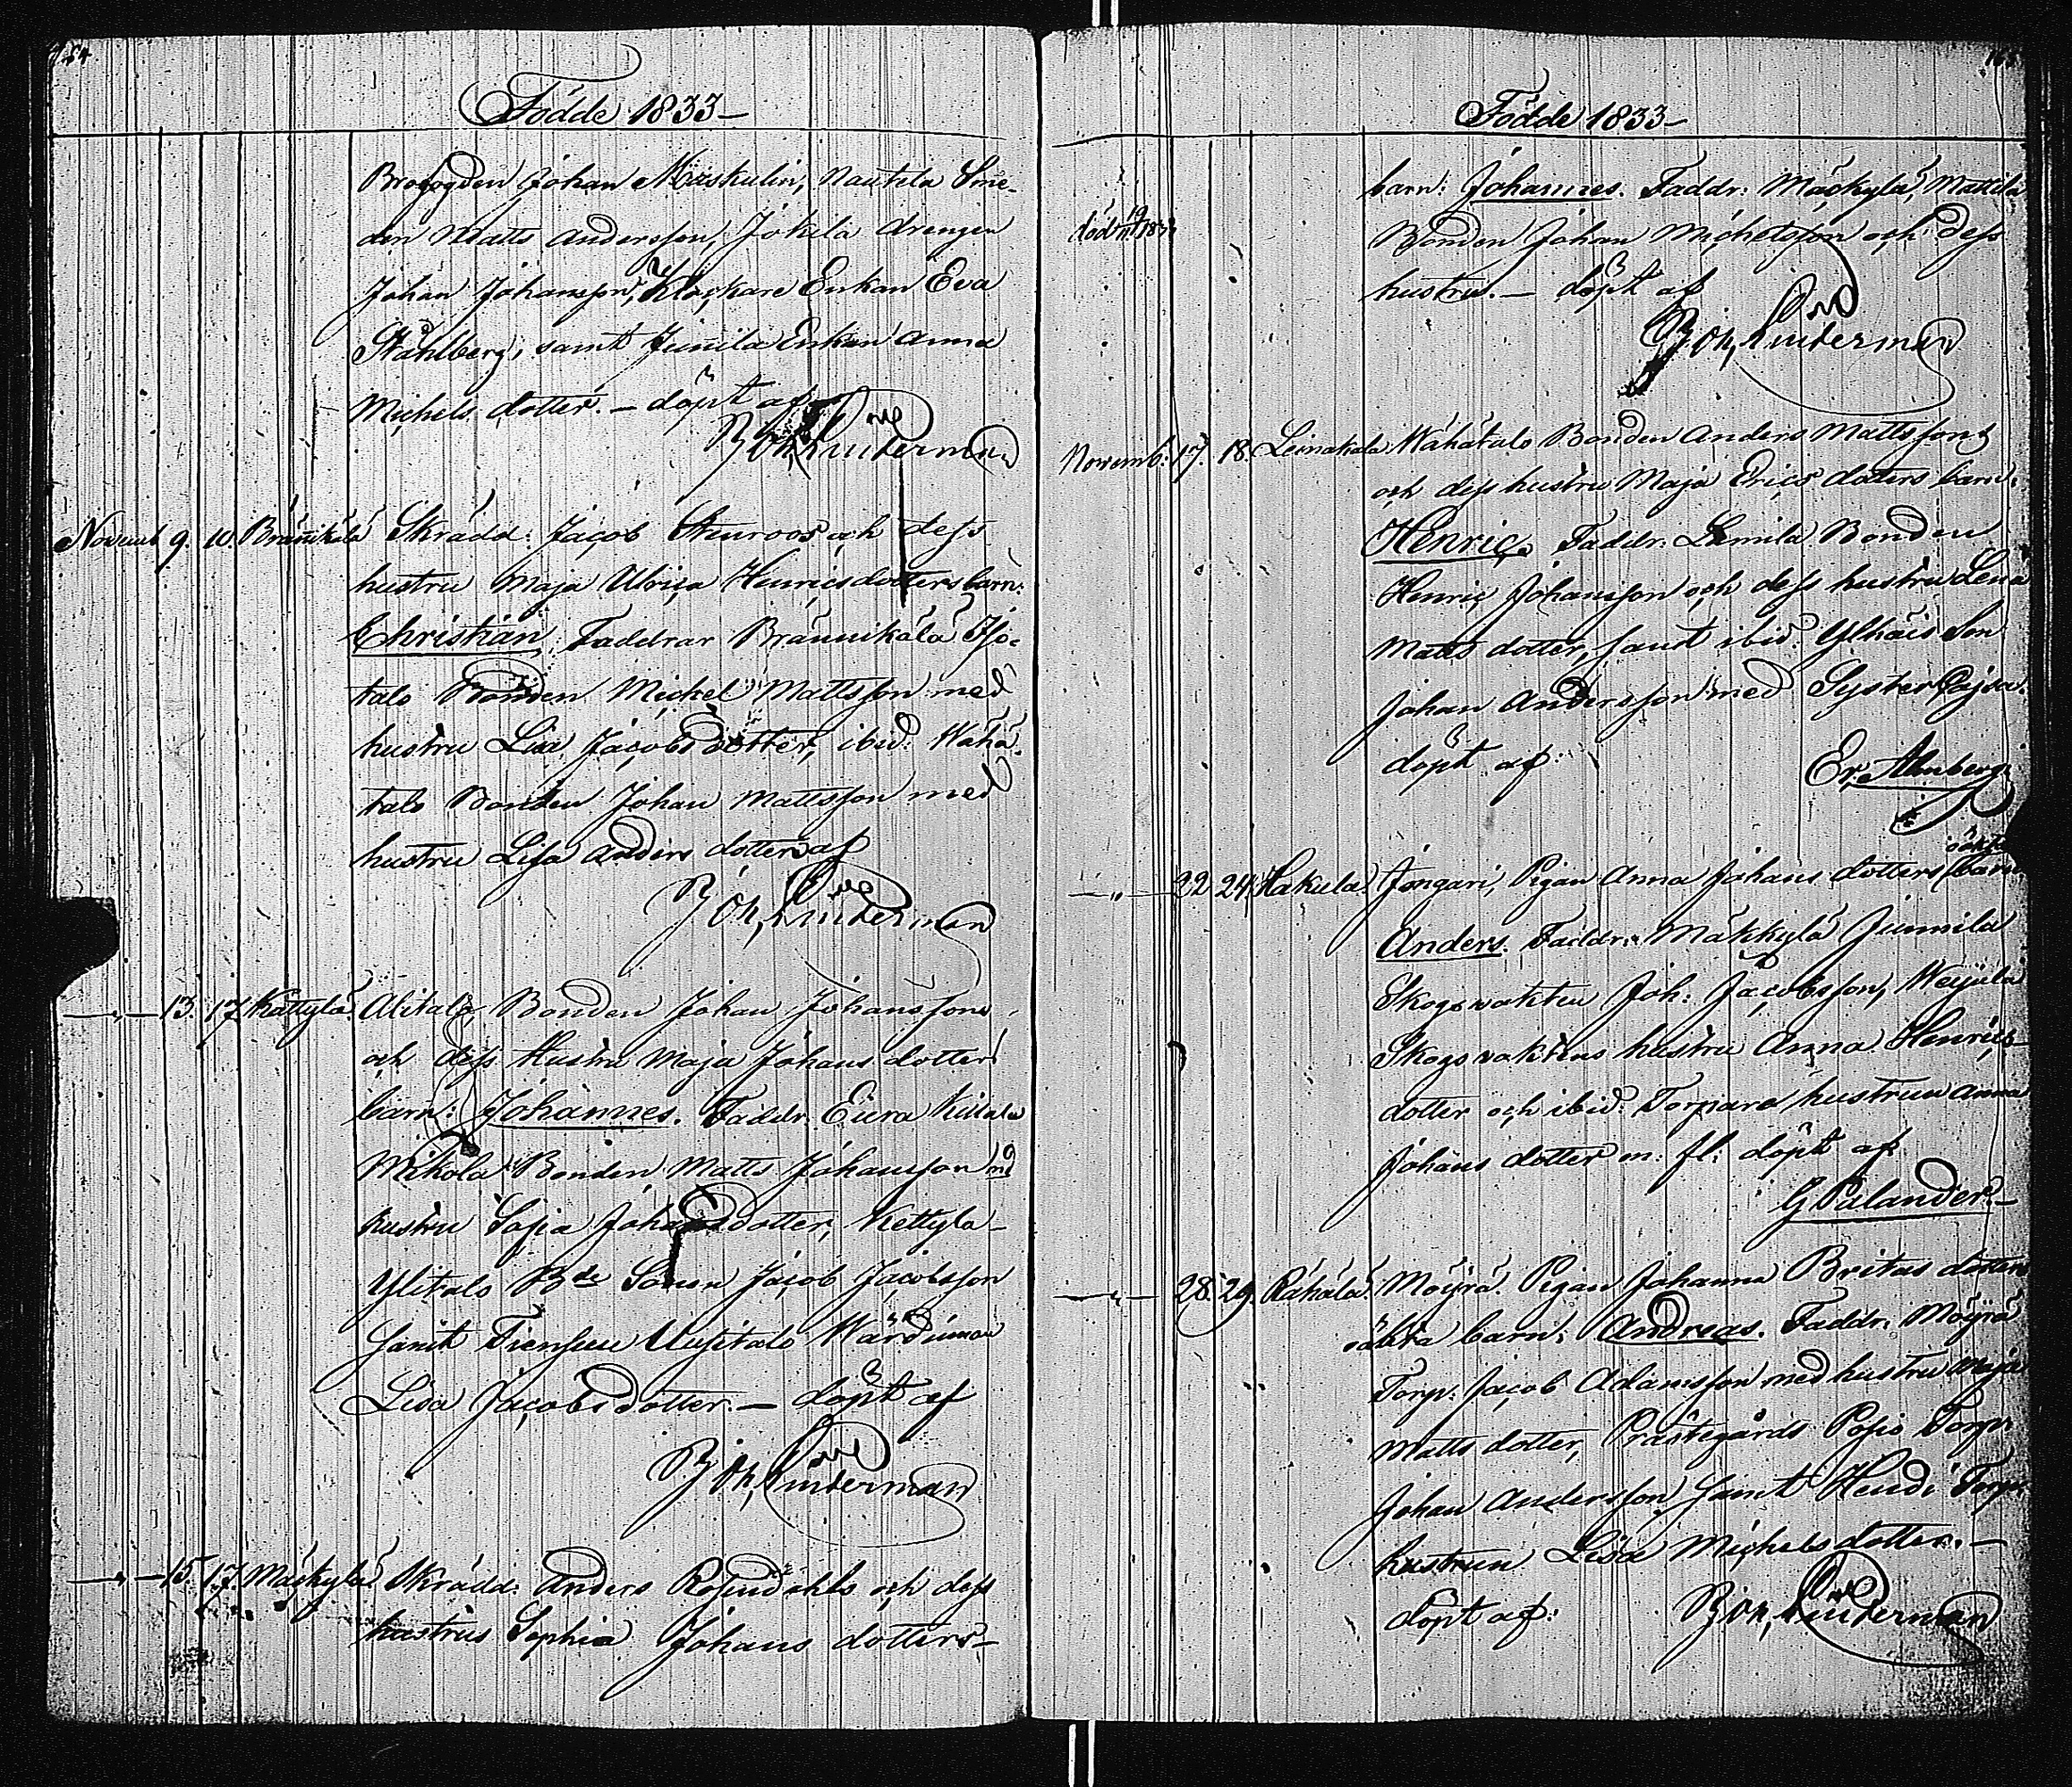 Födde 1833
Brofogden Johan Maskulin, Nautila Sme-
den Matts Andersson, Jokela drengen
Johan Johansson, Klockare Enkan Eva
Ståhlberg, samt Junnila Enkan Anna
Michels dotter. — döpt af
Joh, Linderman
Novemb 9. 10. Brännikälä Skrädd: Jacob Stenroos och dess
hustru Maja Ulrica Henricsdotters barn:
Christian. Faddrar Brännikälä Iso-
talo Bonden Michel Mattsson med
hustru Lisa Jacobs dotter, ibid: Wähä-
talo Bonden Johan Mattsson med
hustru Lisa Anders dotter af
Joh, Linderman
— " — 13. 17 Kättylä. Alitalo, Bonden Johan Johanssons
och dess Hustru Maja Johans dotters
barn: Johannes. Faddr: Eura
Mikola Bonden Matts Johansson md
hustru Sofia Johansdotter, Kettylä
Ylitalo Bde Sonen Jacob Jacobsson
Samt Uusitalo Wärdinnan
Lisa Jacobsdotter. — döpt af
Joh, Linderman
— " — 15. 17. Mäckylä. Skrädd: Anders Rosendahls och dess
hustrus Sophia Johans dotters—
Födde 1833
barn: Johannes. Faddr: Mäckylä, Mattila
död
Bonden Johan Michelsson och dess
hustru. — döpt af
Joh, Linderman
Novemb: 17. 18. Leinakala Wähätalo Bonden Anders Mattssons
och dess hustru Maja Erics dotters barn:
Henric. Faddr: Bonden
Henric Johansson och dess hustru Lena
Matts dotter, samt ibid: Ylhäis Son
Johan Andersson med Syster Cajsa.
döpt af:
Er. Almberg
oäkta
— " — 22 24. Hakula. Jongari, Pigan Anna Johans dotters barn
Anders. Faddr: Mäkkylä Junnila
Skogsvakten Joh: Jacobsson,
Skogsvaktens hustru Anna Henrics-
dotter och ibid: Torpare hustrun Anna
Johans dotter m: fl: döpt af
G Palander.
— " — 28. 29. Räkälä. Möyrä. Pigan Johanna Britas dotters
oäkta barn: Andreas. Faddr: Möyrä
Torp: Jacob Adamsson med hustru Maja
Matts dotter, Prästegårds Torpr
Johan Andersson, Samt Heudi Torpr
hustrun Lisa Michels dotter. —
döpt af: Joh, Linderman